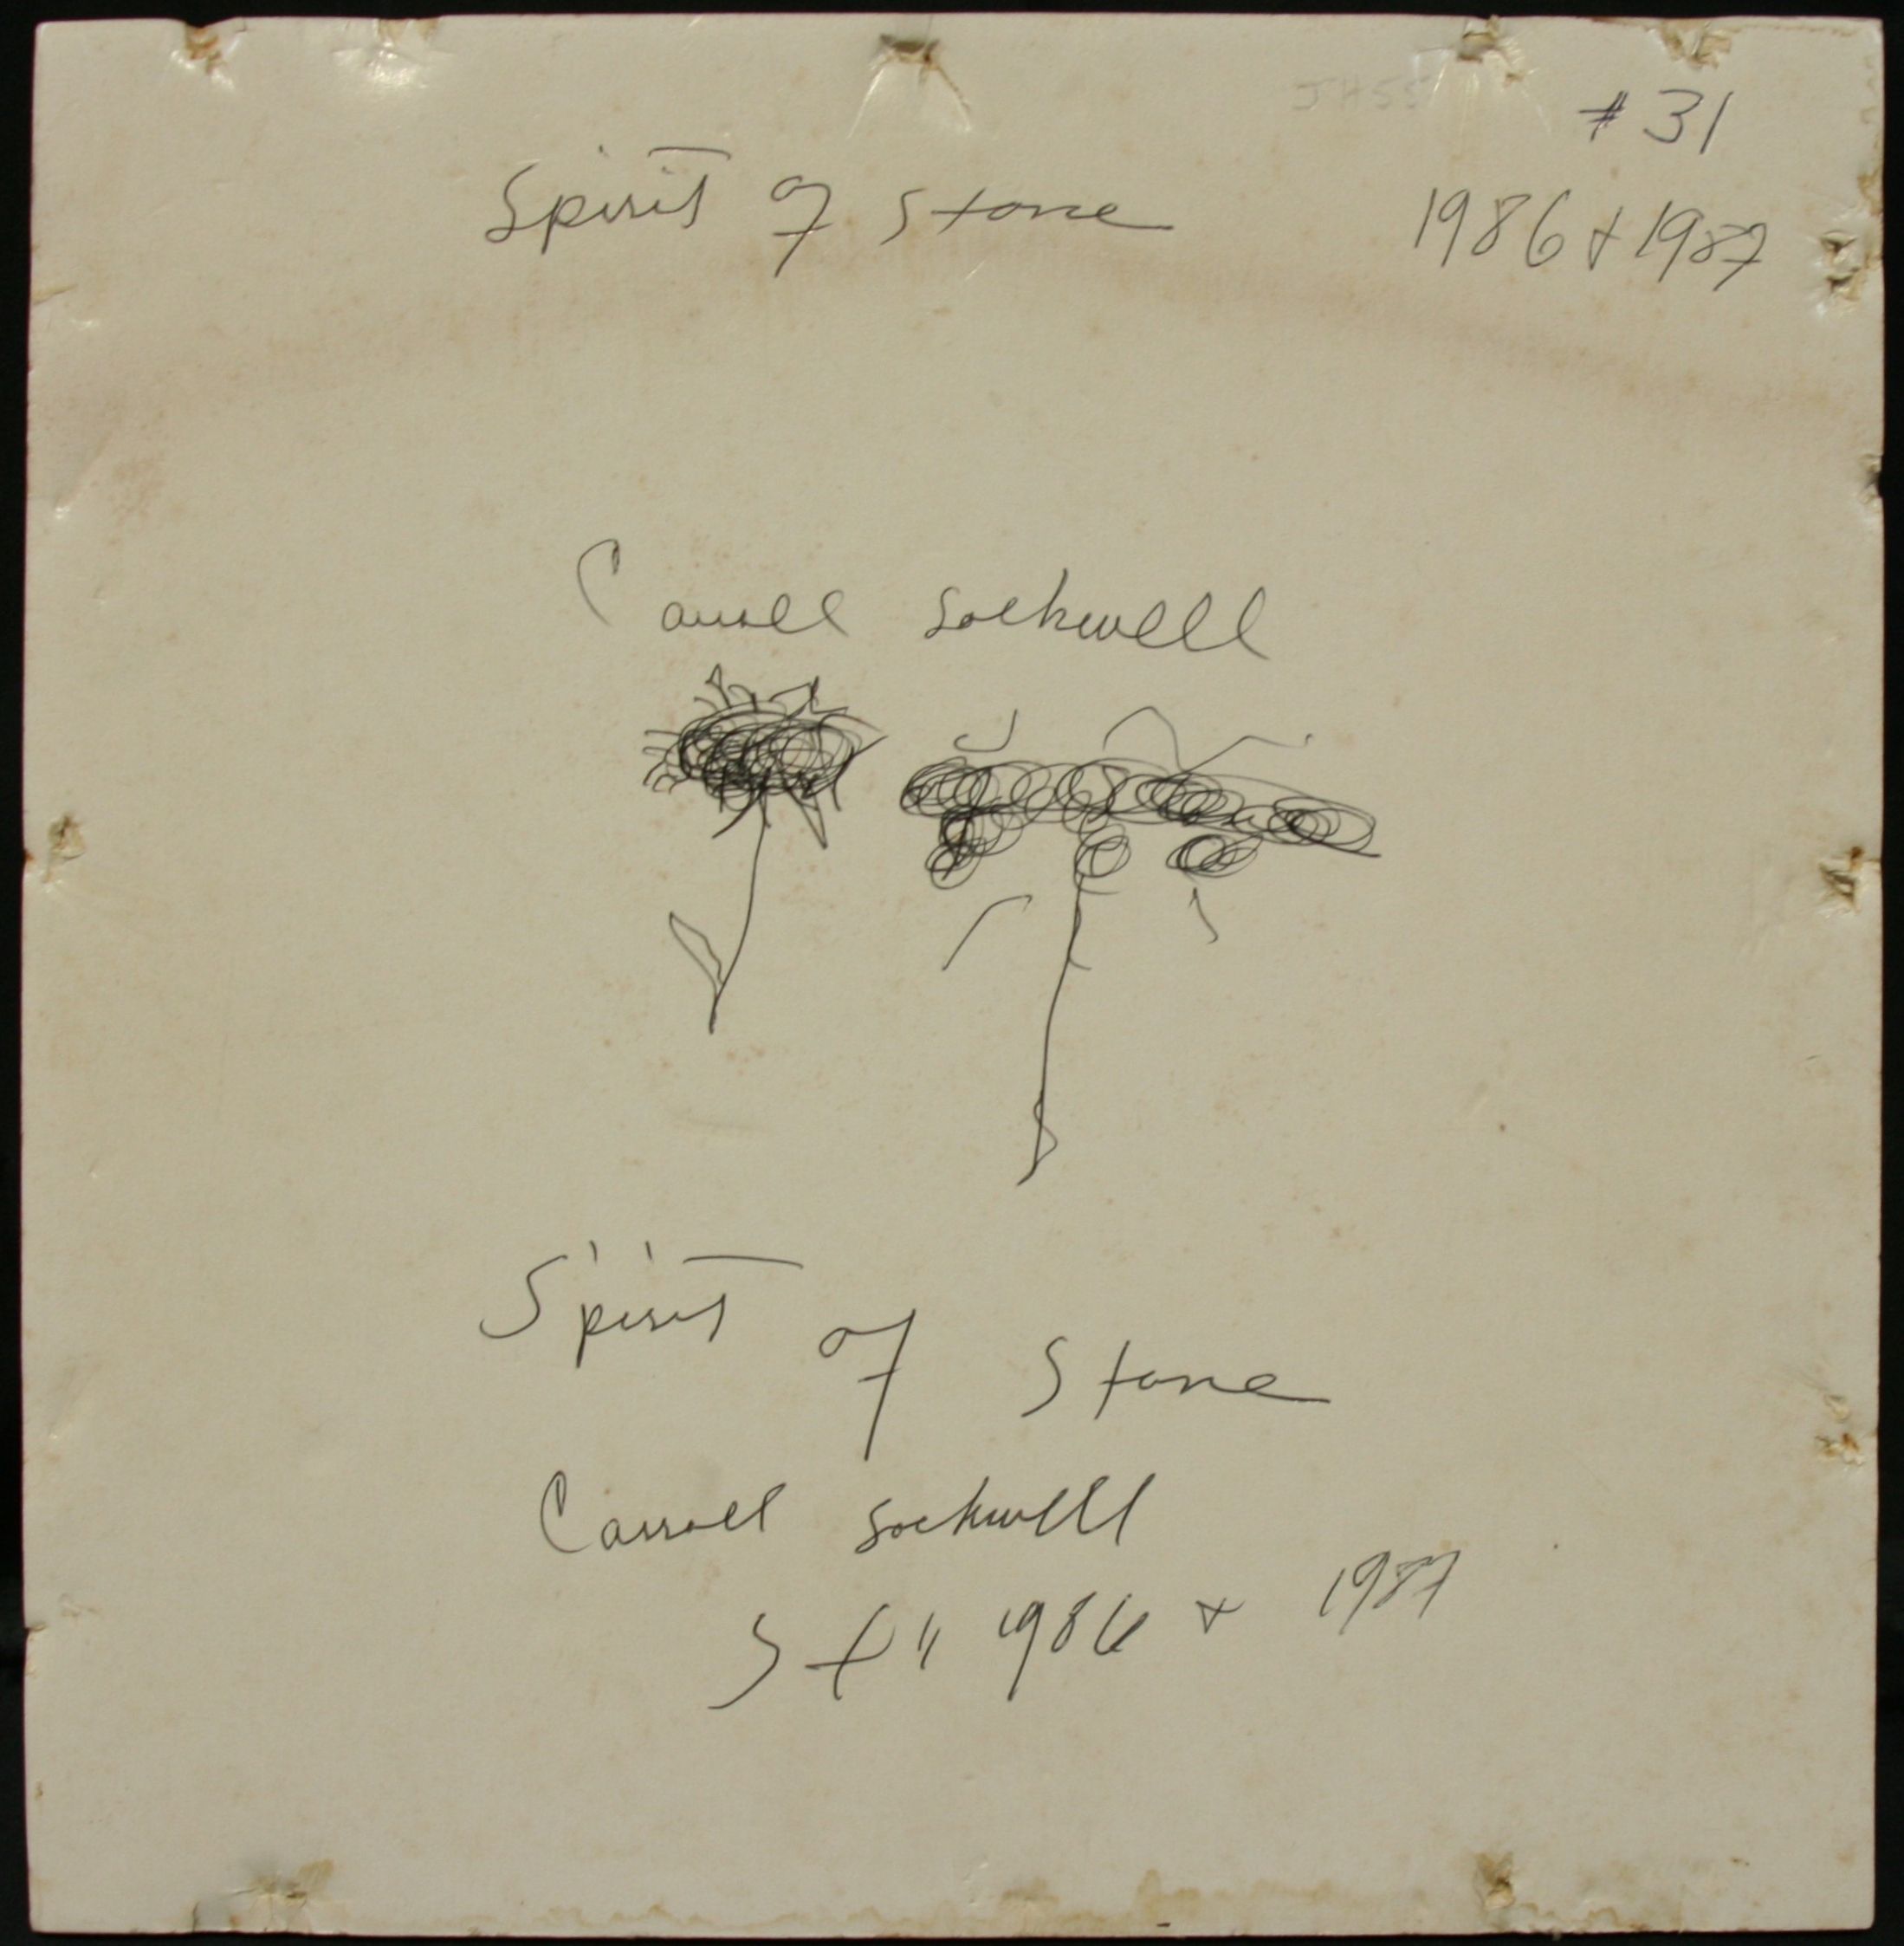 #31
Spirit of Stone
1986 + 1987
Carroll Sockwell
Spirit of Stone
Carroll Sockwell
1986 + 1987